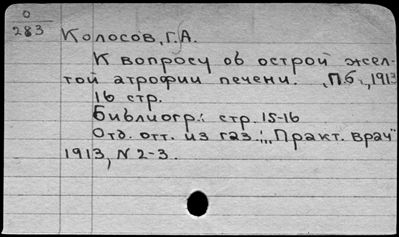 0
283
Колосов, Г.А.
К вопросу об острой жел-
той атрофии печени. Пб., 1913
16 стр.
Библиогр.: стр. 15-16
Отд. отт. из газ.: „Практ. врач"
1913, N 2-3.